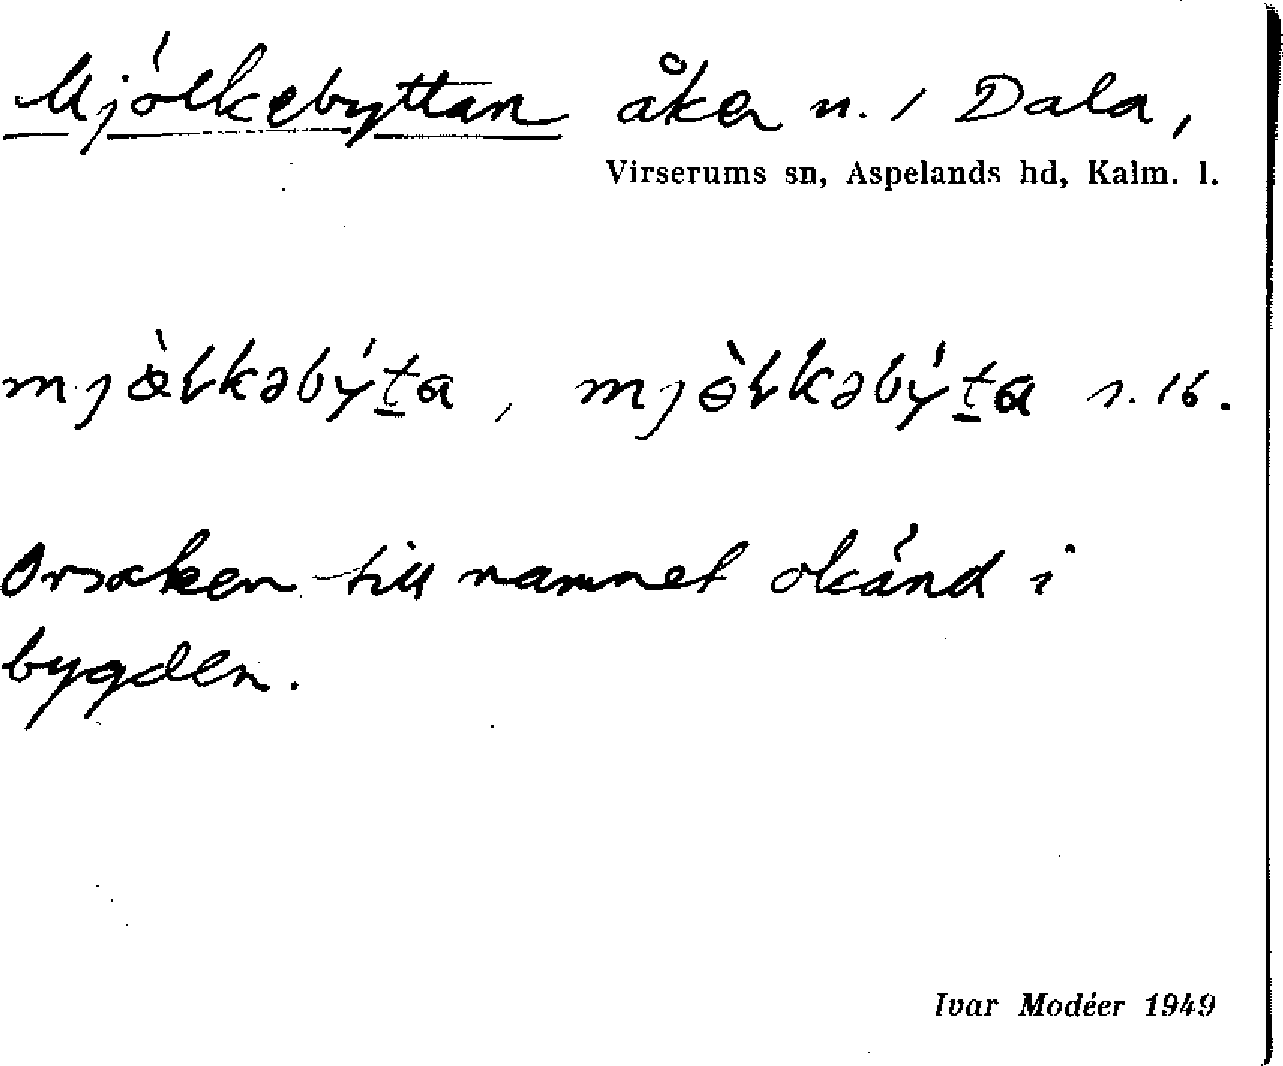 Mjölkebyttan åker n. 1 Dala,
Virserums sn, Aspelands hd, Kalm. l.
mjœ̀lkəbýt̲a, mjɵ̀lkəbýt̲a s. 16.
Orsaken till namnet okänd i
bygden.
Ivar Modéer 1949